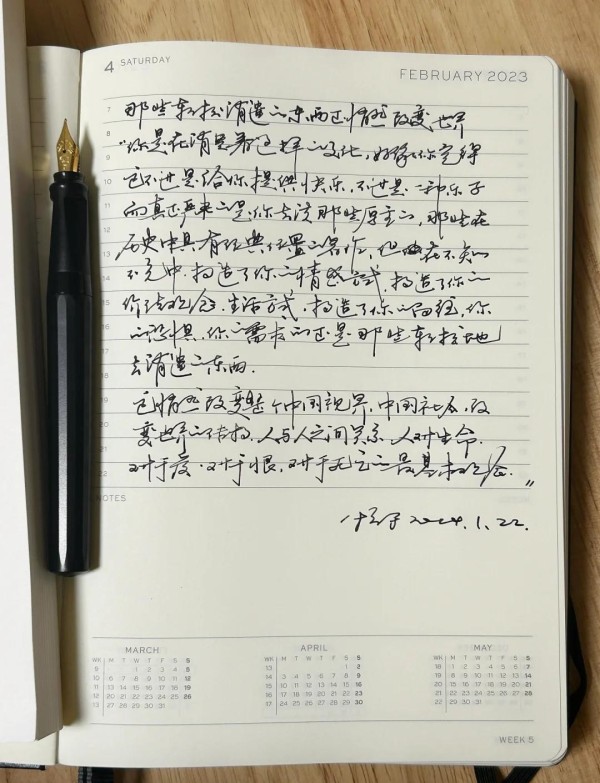 4 SATURDAY
FEBRUARY 2023
那些轻松消遣的东西正悄然改变世界
"你是在消费着这样的文化,好像你觉得
它不过是给你提供快乐,不过是一种乐子
而真正严肃的是你去读那些原著的,那些在
历史中具有经典位置的著作,但在不知
不觉中,打造了你的情感方式,打造了你的
价值观念、生活方式,打造了你的向往,你
的恐惧,你的需求的正是那些轻松地
去消遣的东西.
它悄然改变整个中国视界,中国社会,改
变世界的结构,人与人之间关系,人对生命,
对于爱,对于恨,对于死亡的最基本观念."
2024.1.22.
NOTES
MARCH
WK M T W T F S S
9 1 2 3 4 5
10 6 7 8 9 10 11 12
11 13 14 15 16 17 18 19
12 20 21 22 23 24 25 26
13 27 28 29 30 31
APRIL
WK M T W T F S S
13 1 2
14 3 4 5 6 7 8 9
15 10 11 12 13 14 15 16
16 17 18 19 20 21 22 23
17 24 25 26 27 28 29 30
MAY
WK M T W T F S S
18 1 2 3 4 5 6 7
19 8 9 10 11 12 13 14
20 15 16 17 18 19 20 21
21 22 23 24 25 26 27 28
22 29 30 31
WEEK 5